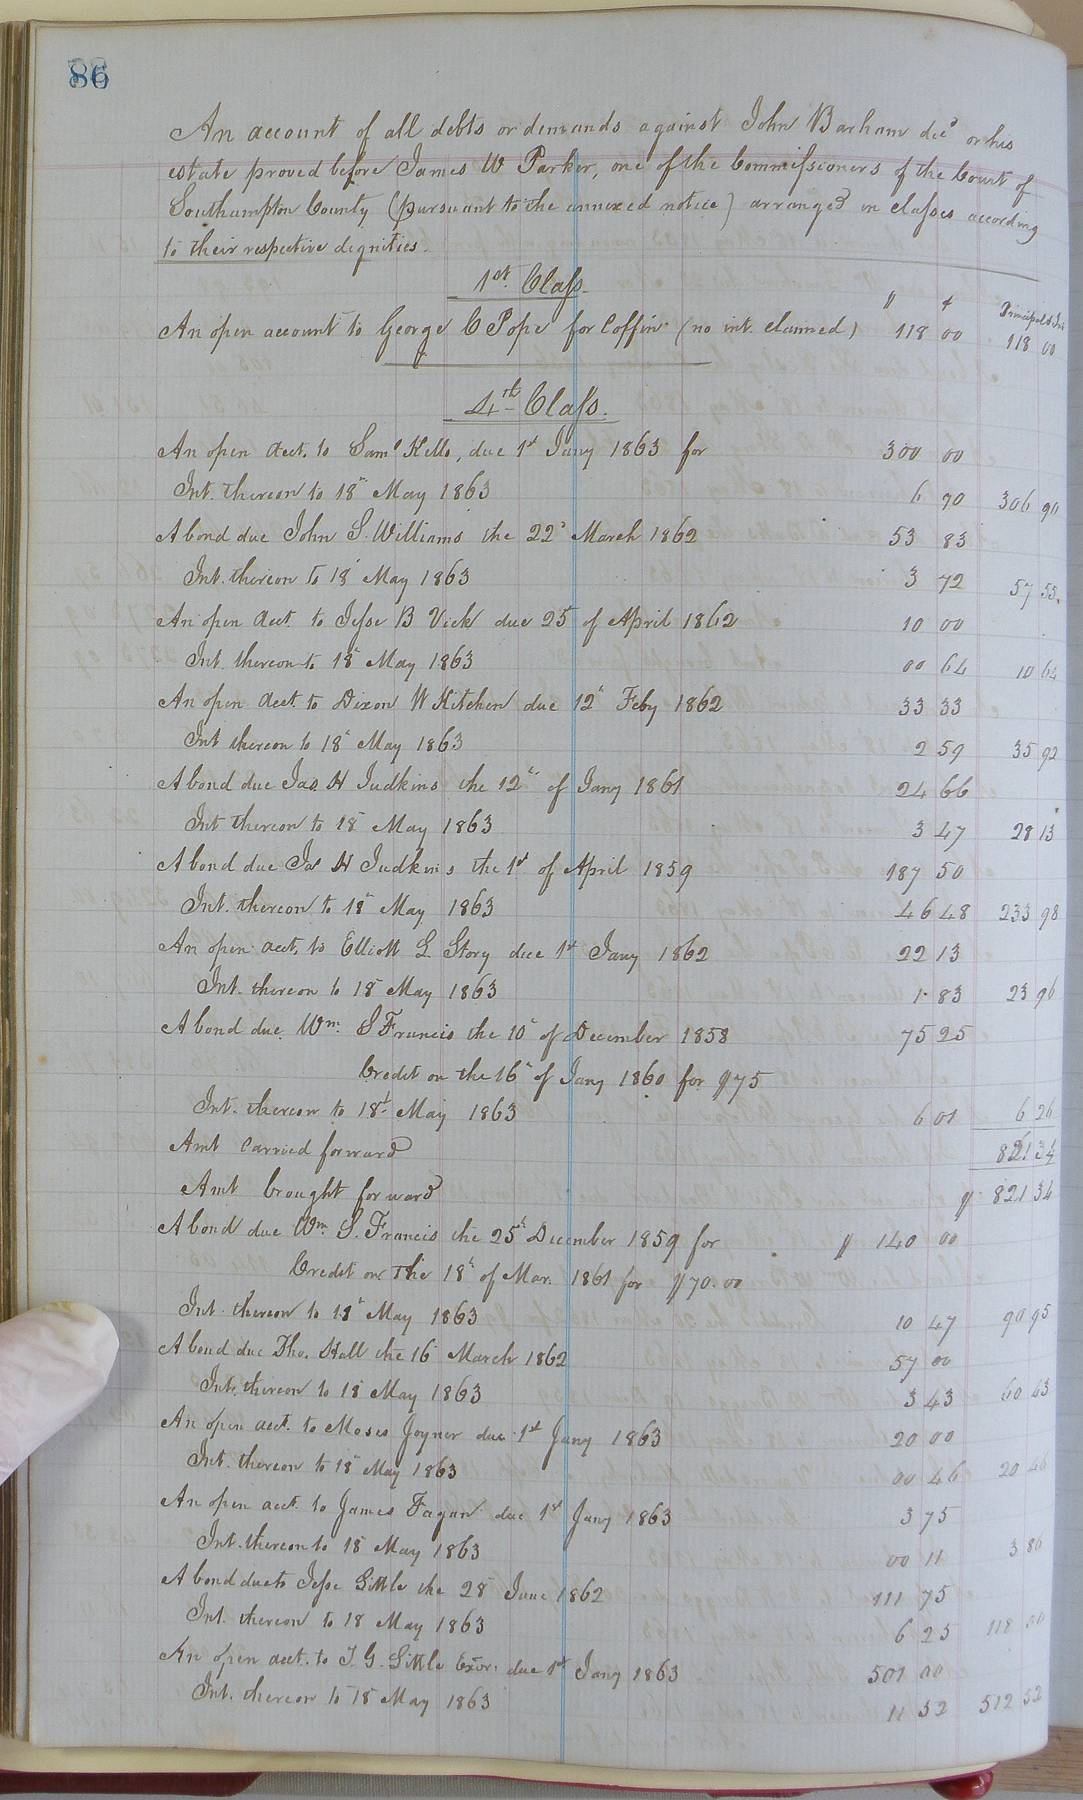 86
An account of all debts or demands against John Barham decd or his
estate proved before James W Parker, one of the Commissioners of the Court of
Southampton County (pursuant to the annexed notice) arranged in classes according
to their respective dignities.
1st. Class.
$ ¢ Principal & Int
An open account to George C Pope for Coffin (no int. claimed) 118 00 118 00
4th Class.
An open acct. to Saml Kello, due 1st Jany 1863 for 300 00
Int. thereon to 18" May 1863 6 90 306 90
A bond due John S. Williams the 22d March 1862 53 83
Int. thereon to 18" May 1863 3 72 57 55.
An open acct to Jesse B Vick due 25 of April 1862 10 00
Int. thereon to 18 May 1863 00 64 10 64
An open acct. to Dixon W Kitchen due 12" Feby 1862 33 33
Int thereon to 18" May 1863 2 59 35 92
A bond due Jas H Judkins the 12" of Jany 1861 24 66
Int thereon to 18" May 1863 3 47 28 13
A bond due Jas H Judkins the 1st of April 1859 187 50
Int. thereon to 18" May 1863 46 48 233 98
An open acct. to Elliott L Story due 1st Jany 1862 22 13
Int. thereon to 18" May 1863 1 83 23 96
A bond due Wm. S Francis the 10" of December 1858 75 25
Credit on the 16" of Jany 1860 for $75
Int. thereon to 18t May 1863 6 01 6 26
Amt carried forward 821 34
Amt brought forward $ 821 34
A bond due Wm S. Francis the 25" December 1859 for $ 140 00
Credit on the 18" of Mar. 1861 for $70.00
Int thereon to 18" May 1863 10 47 90 95
A bond due Tho. Hall the 16 March 1862 57 00
Int. thereon to 18 May 1863 3 43 60 43
An open acct. to Moses Joyner due 1st Jany 1863 20 00
Int. thereon to 18" May 1863 00 46 20 46
An open acct. to James Fagan due 1st Jany 1863 3 75
Int. thereon to 18" May 1863 00 11 3 86
A bond due to Jesse Little the 28" June 1862 111 75
Int. thereon to 18 May 1863 6 25 118 00
An open acct. to J. G. Little Exor. due 1st Jany 1863 501 00
Int. thereon to 18 May 1863 11 52 512 52